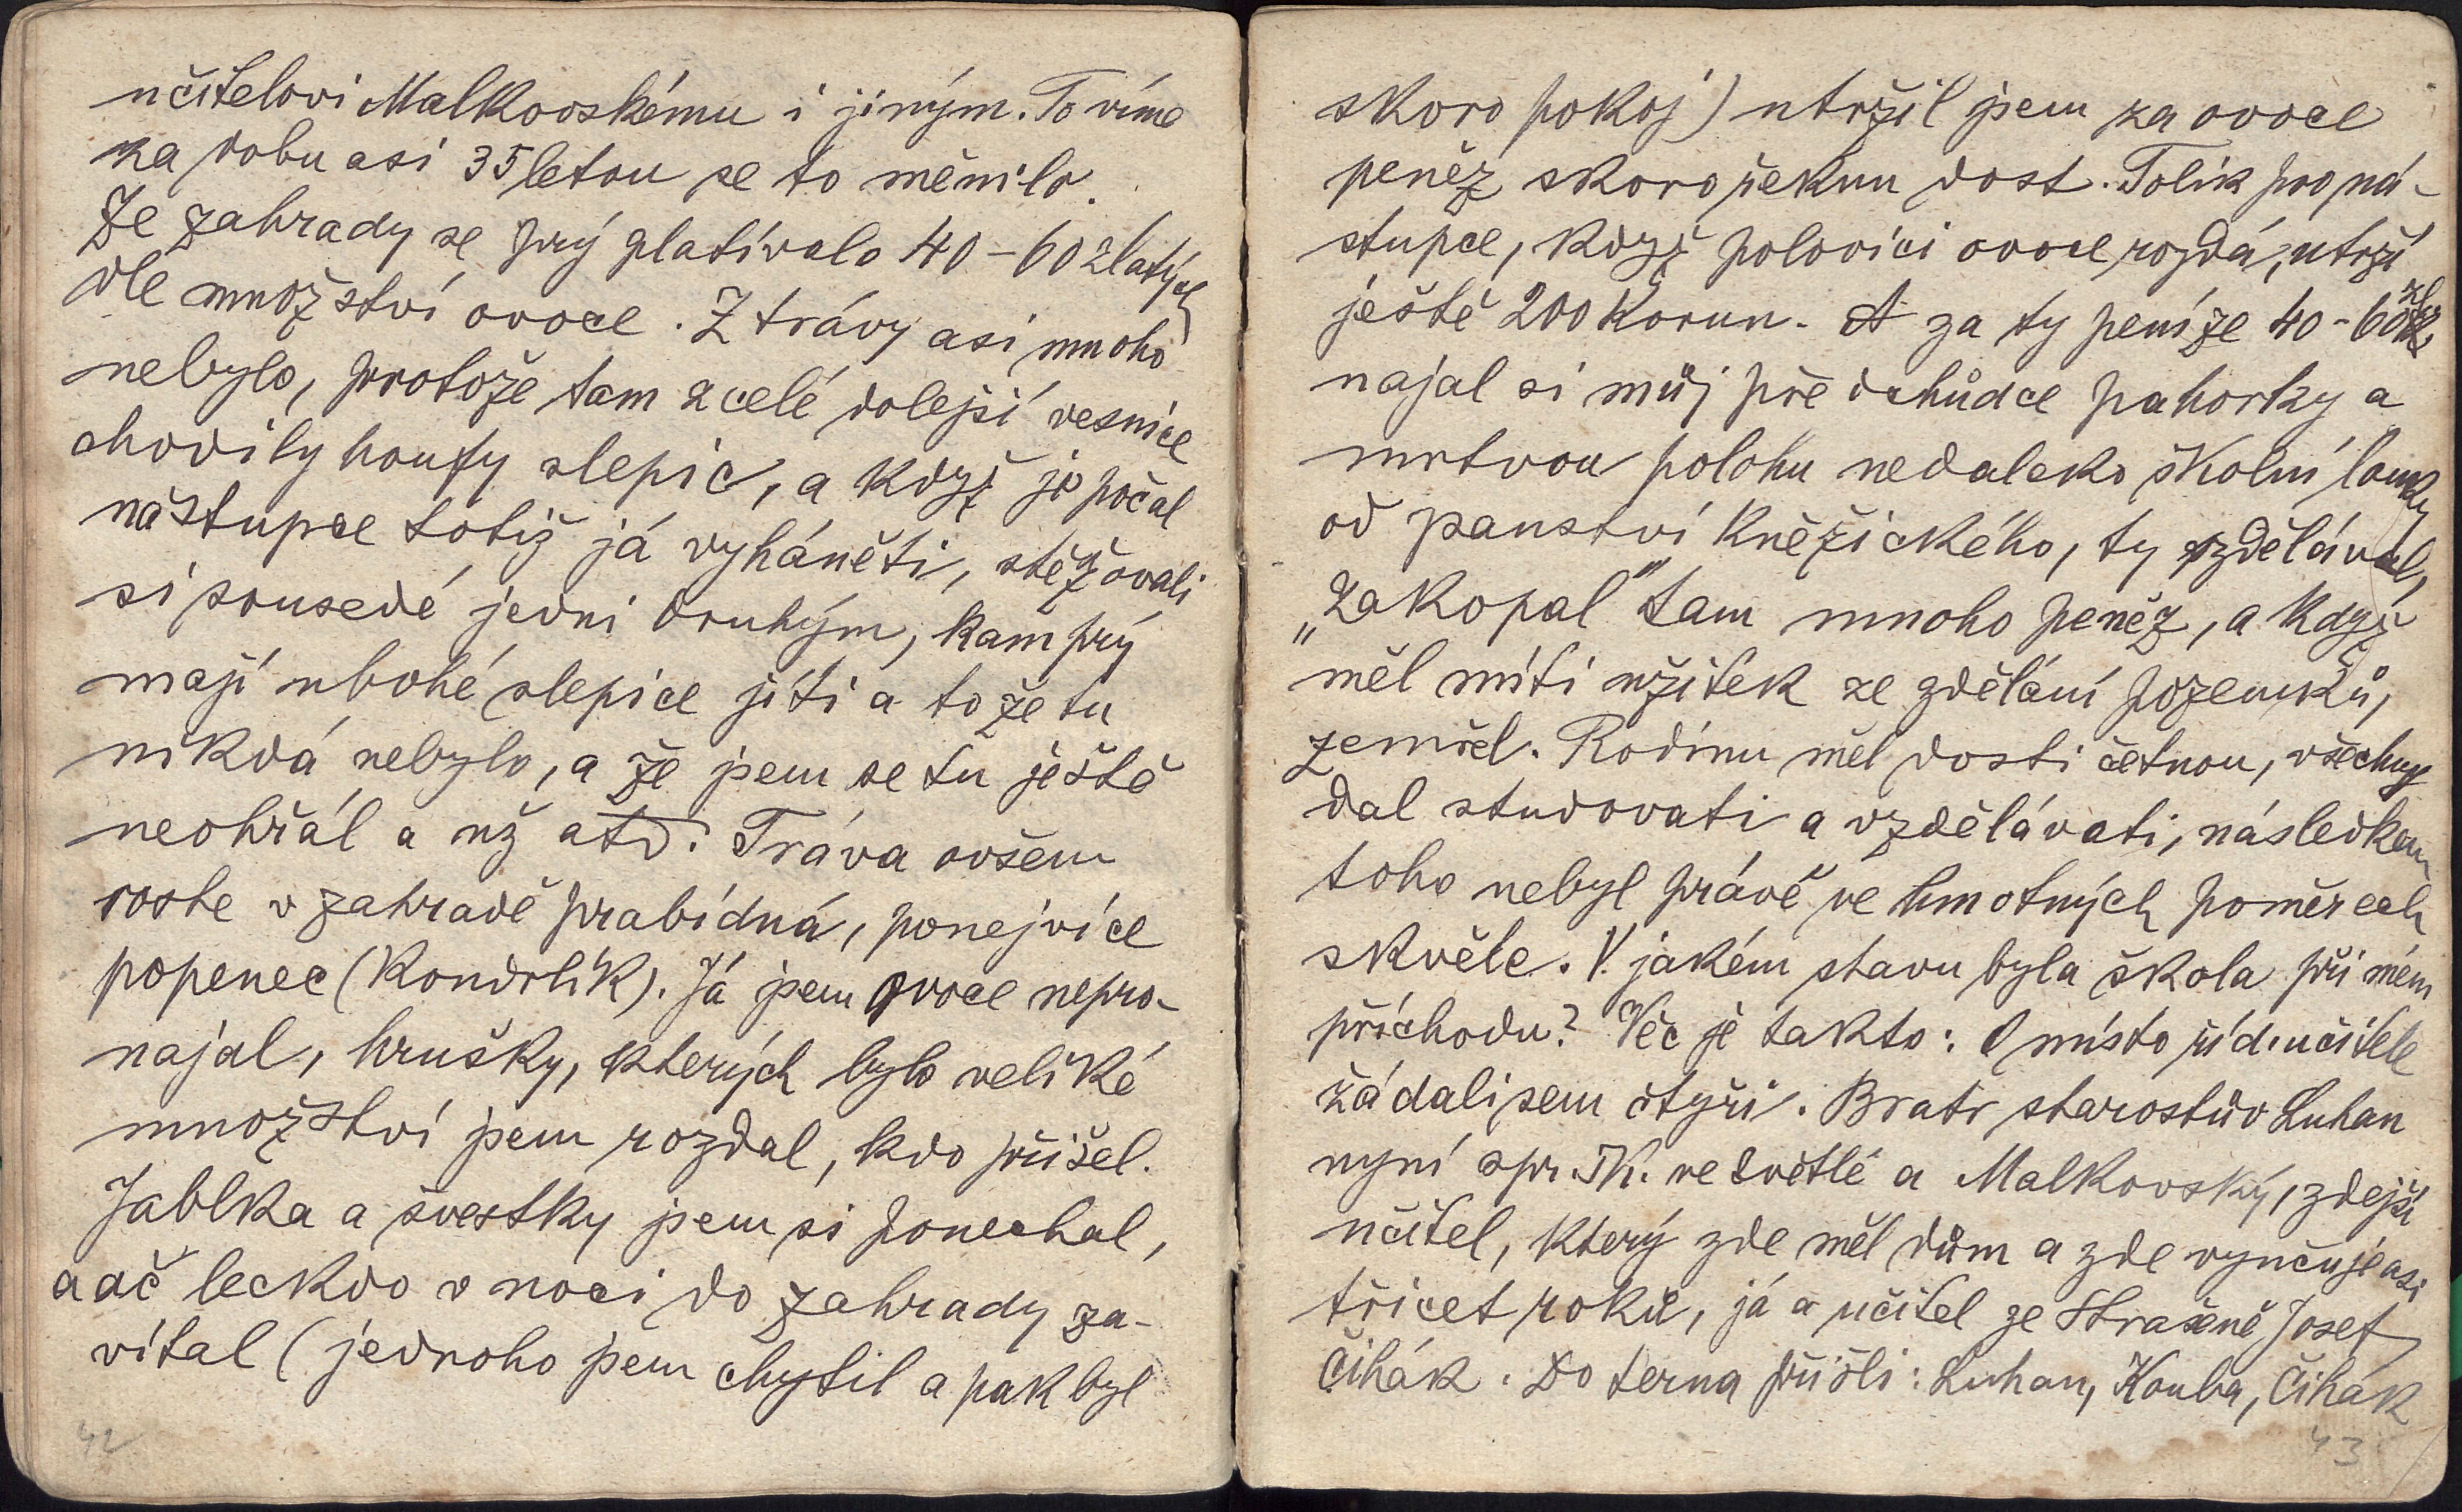 učitelovi Malkovskému i jiným. To víme
za dobu asi 35letou se to měnilo.
Ze zahrady se prý platívalo 40-60 zlatých
dle množství ovoce. Z trávy asi mnoho
nebylo, protože tam z celé dolejší vesnice
chodily houfy slepic, a když je počal
nástupce totiž já vyháněti, stěžovali
si sousedé jedni druhým, kam prý
mají ubohé slepice jíti a to že tu
nikdá nebylo, a že jsem se tu ještě
neohřál a už atd. Tráva ovšem
roste v zahradě prabídná, ponejvíce
popenec (Kondrlík). Já jsem ovoce nepro-
najal, hrušky, kterých bylo veliké
množství jsem rozdal, kdo přišel.
Jablka a švestky jsem si ponechal,
a ač leckdo v noci do zahrady za-
vítal (jednoho jsem chytil a pak byl
42
skoro pokoj) utržil jsem za ovoce
peněz skoro řeknu dost. Tolik pro ná-
stupce, když polovici ovoce rozdá, utrží
ještě 200 Korun. A za ty peníze 40-60 zl
najal si můj předchůdce pahorky a
mrtvou polohu nedaleko školní louky
od panství Kněžického, ty vzdělával,
„Zakopal" tam mnoho peněz, a když
měl míti užitek ze zdělání pozemků,
zemřel. Rodinu měl dosti četnou, všechny
dal studovati a vzdělávati, následkem
toho nebyl právě ve hmotných poměrech
skvěle. V jakém stavu byla škola při mém
příchodu? Věc je takto: O místo říd. učitele
žádali jsem čtyři. Bratr starostův Luhan
nyní spr. šk. ve Světlé a Malkovský, zdejší
učitel, který zde měl dům a zde vyučuje asi
třicet roků, já a učitel ze Strašeně Josef
Čihák. Do terna přišli: Luhan, Kouba, Čihák
43